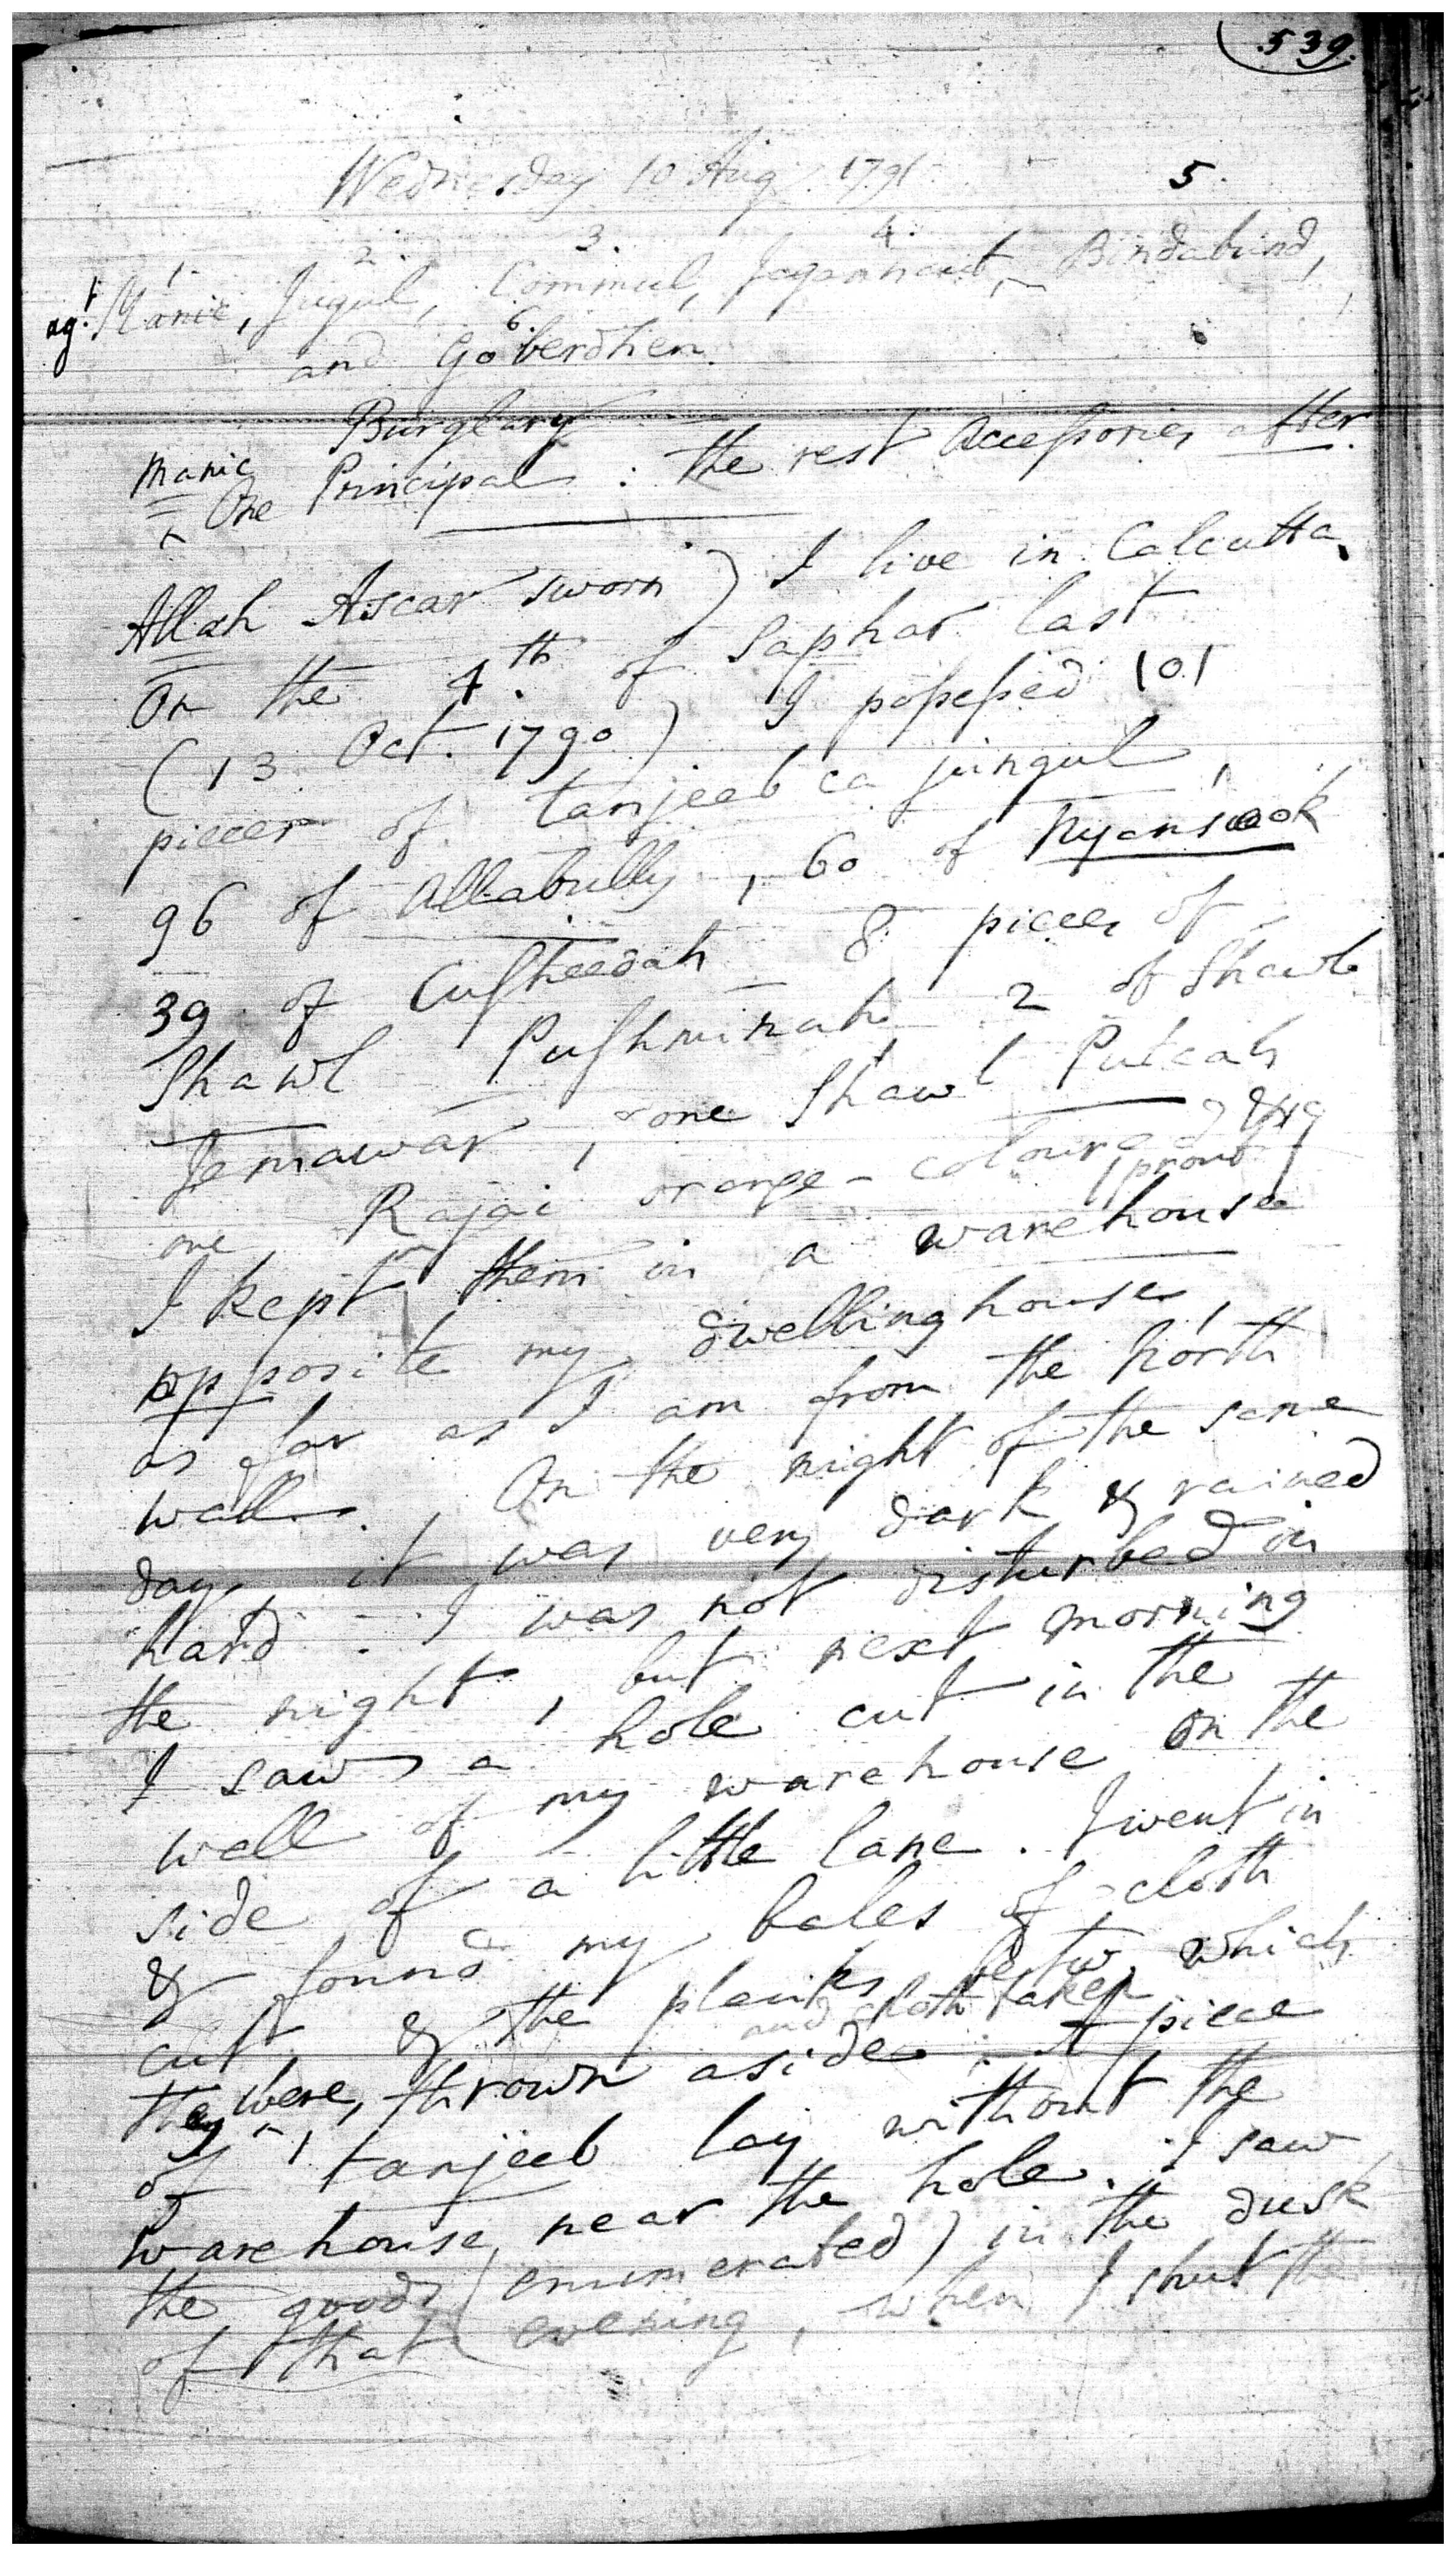 539.
Wednesday 10 Aug 1791
1. 2. 3. 4. 5.
agt. Manic, Jugul, Commul, Jagernaut, Bindabund,
6.
and Goberdhen.
Burglary
Manic
One Principal : the rest Accessories after.
Allah Ascar sworn) I live in Calcutta.
On the 4.th of Saphar last
(13 Oct. 1790) I possessed 101
pieces of tanjeeb ca jungul,
96 of Allabully, 60 of Nyansook
39 of Cusheedah 8 pieces of
Shawl Pushminah 2 of Shawl
Jemawar, & one Shawl Putcah
one Rajai orange-coloured
I kept them in a warehouse
opposite my dwelling house,
as far as I am from the north
wall. On the night of the same
day, it was very dark & rained
hard. I was not disturbed in
the night, but next morning
I saw a hole cut in the
wall of my warehouse on the
side of a little lane. I went in
& found my bales of cloth
cut & the planks betw. which
and cloth taken
they were, thrown aside. A piece
of tanjeeb lay without the
warehouse, near the hole. I saw
the goods (enumerated) in the dusk
of that evening, when I shut the